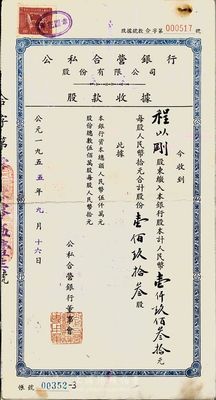 股款號數合字第000517號
公私合營銀行
股份有限公司
股款收據
今收到
程以剛股東繳入本銀行股本計人民幣壹仟玖佰叁拾元
每股人民幣拾元合計股份壹佰玖拾叁股
此據
本銀行資本總額人民幣伍仟萬元
股份總數伍佰萬股每股人民幣拾元
公私合營銀行董事會
公元一九五五年九月十六日
帳號 00352-3